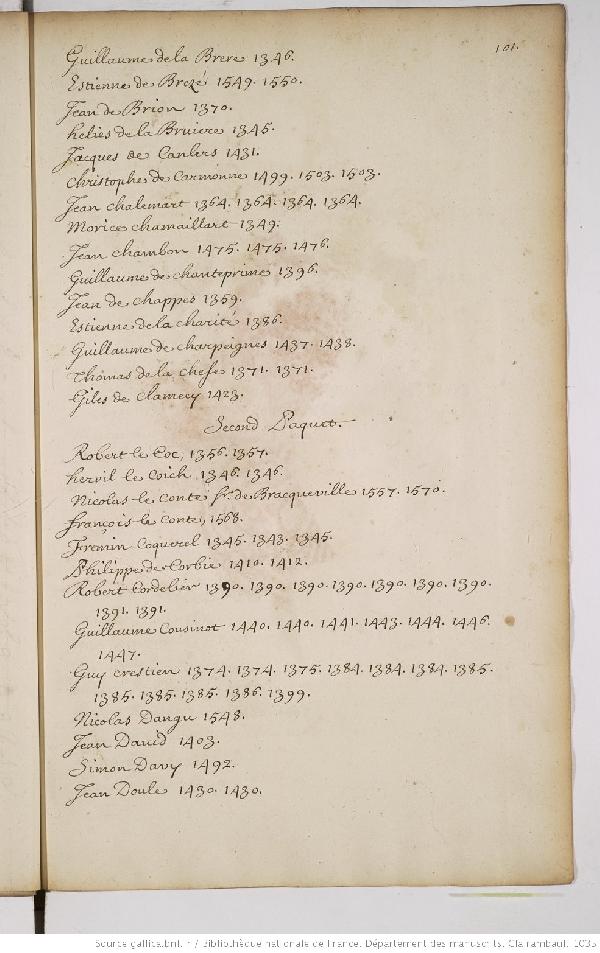 101.
Guillaume de la Brere 1346.
Estienne de Brezé 1549. 1550.
Jean de Brion 1370.
helies de la Bruiere 1345.
Jacques de Canlers 1431.
Christophe de Carmonne 1499. 1503. 1503.
Jean chalemart 1364. 1364. 1364. 1364.
Morice chamaillart 1349.
Jean chambon 1475. 1475. 1476.
Guillaume de chanteprime 1396.
Jean de chappes 1359.
Estienne de la charité 1386.
Guillaume de charpeignes 1437. 1438.
Thomas de la chese 1371. 1371.
Giles de Clamecy 1423.
Second Paquet.
Robert le Coc, 1356. 1357.
hervil le Coich 1346. 1346.
Nicolas le Conte sr. de Bracqueville 1557. 1570.
françois le Conte, 1568.
Fremin Coquerel 1345. 1343. 1345.
Philippe de Corbie 1410. 1412.
Robert Cordelier 1390. 1390. 1390. 1390. 1390. 1390. 1390.
1391. 1391.
Guillaume Cousinot 1440. 1440. 1441. 1443. 1444. 1446.
1447.
Guy crestien 1374. 1374. 1375. 1384. 1384. 1384. 1385.
1385. 1385. 1385. 1386. 1399.
Nicolas Dangu 1548.
Jean David 1403.
Simon Davy 1492.
Jean Doule 1430. 1430.
Source gallica.bnf.fr / Bibliothèque nationale de France. Département des manuscrits. Clairambault 1035